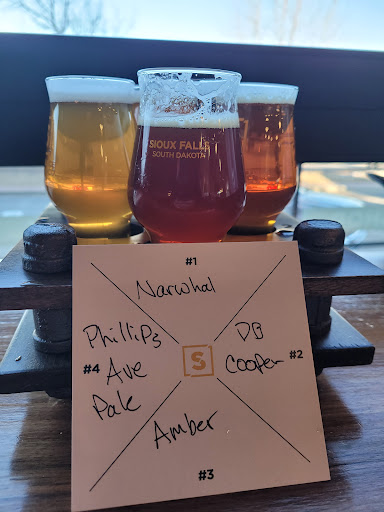 SIOUX FALLS
SOUTH DAKOTA
#1
Narwhal
Phillips
#4 Ave
Pale
S
DB
Cooper #2
Amber
#3